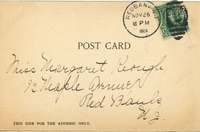 RED BANK
NOV 26
8 PM
1904
POST CARD
Miss Margaret Keough
12 Maple Avenue
Red Bank
N.J.
THIS SIDE FOR THE ADDRESS ONLY.